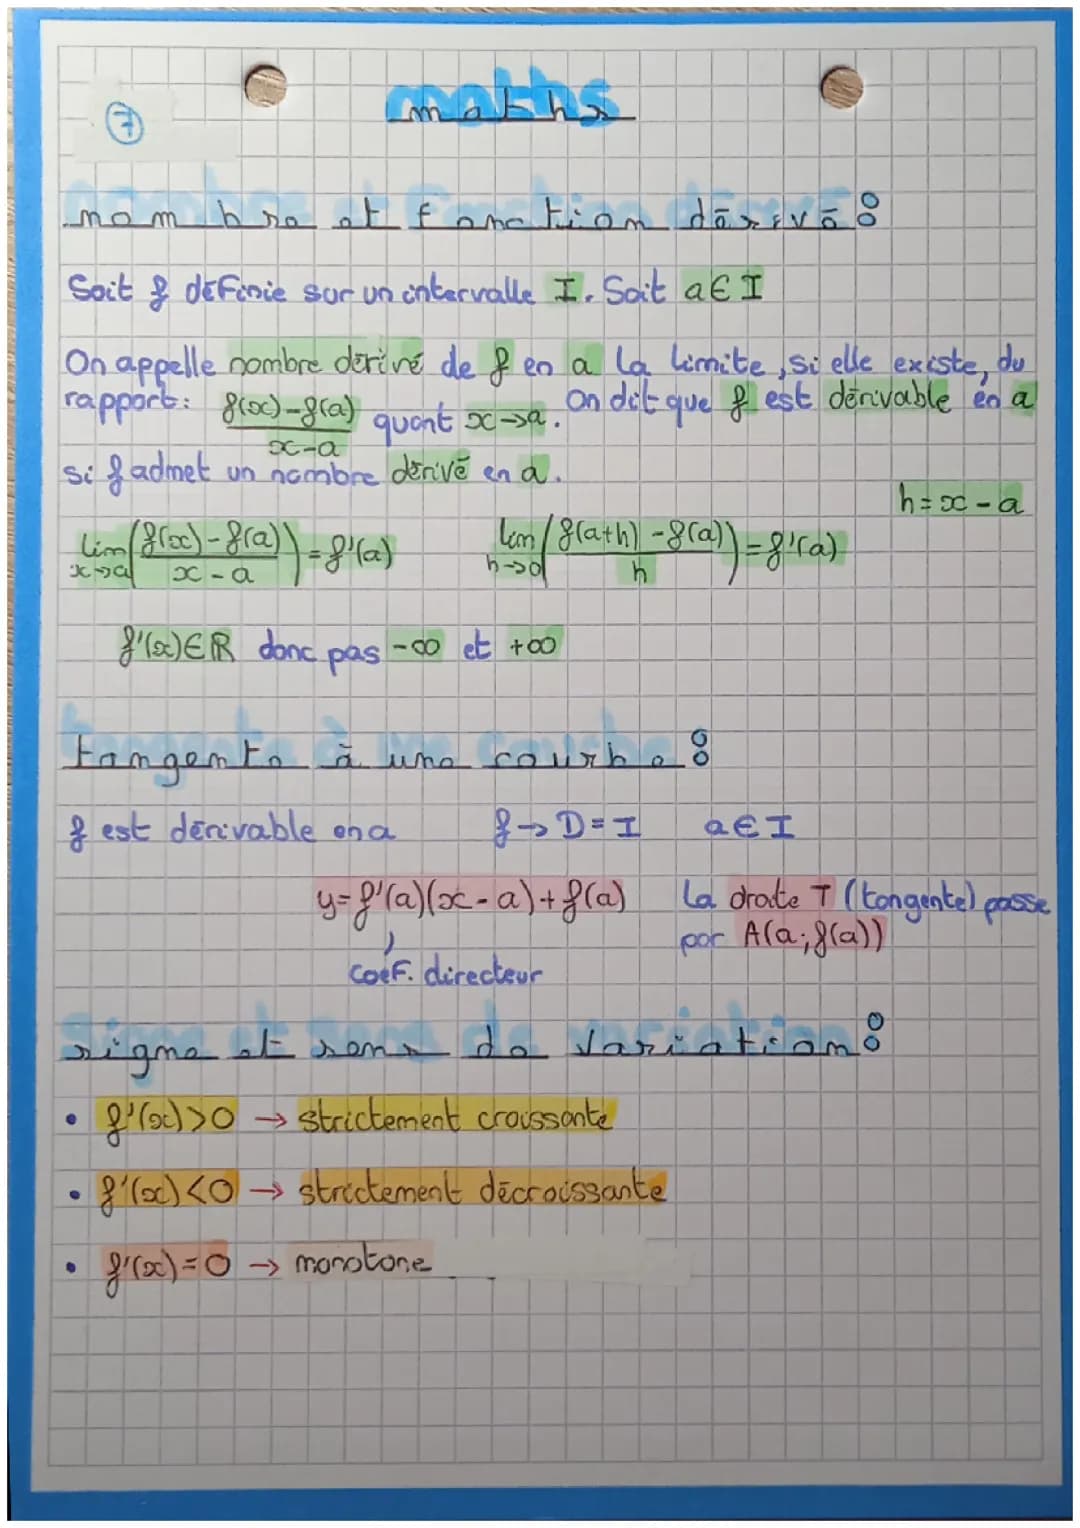 7
maths
nombre et fonction dérivé :
Soit f définie sur un intervalle I. Soit a ∈ I
On appelle nombre dérivé de f en a la limite, si elle existe, du
rapport : (f(x)-f(a))/(x-a) quant x→a. On dit que f est dérivable en a
si f admet un nombre dérivé en a.
h = x - a
lim x→a ((f(x)-f(a))/(x-a)) = f'(a) lim h→0 ((f(a+h)-f(a))/h) = f'(a)
f'(x) ∈ ℝ donc pas -∞ et +∞
tangente à une courbe :
f est dérivable en a f → D = I a ∈ I
y = f'(a)(x-a) + f(a) la droite T (tangente) passe
par A(a ; f(a))
coef. directeur
signe et sens de variation :
• f'(x) > 0 → strictement croissante
• f'(x) < 0 → strictement décroissante
• f'(x) = 0 → monotone